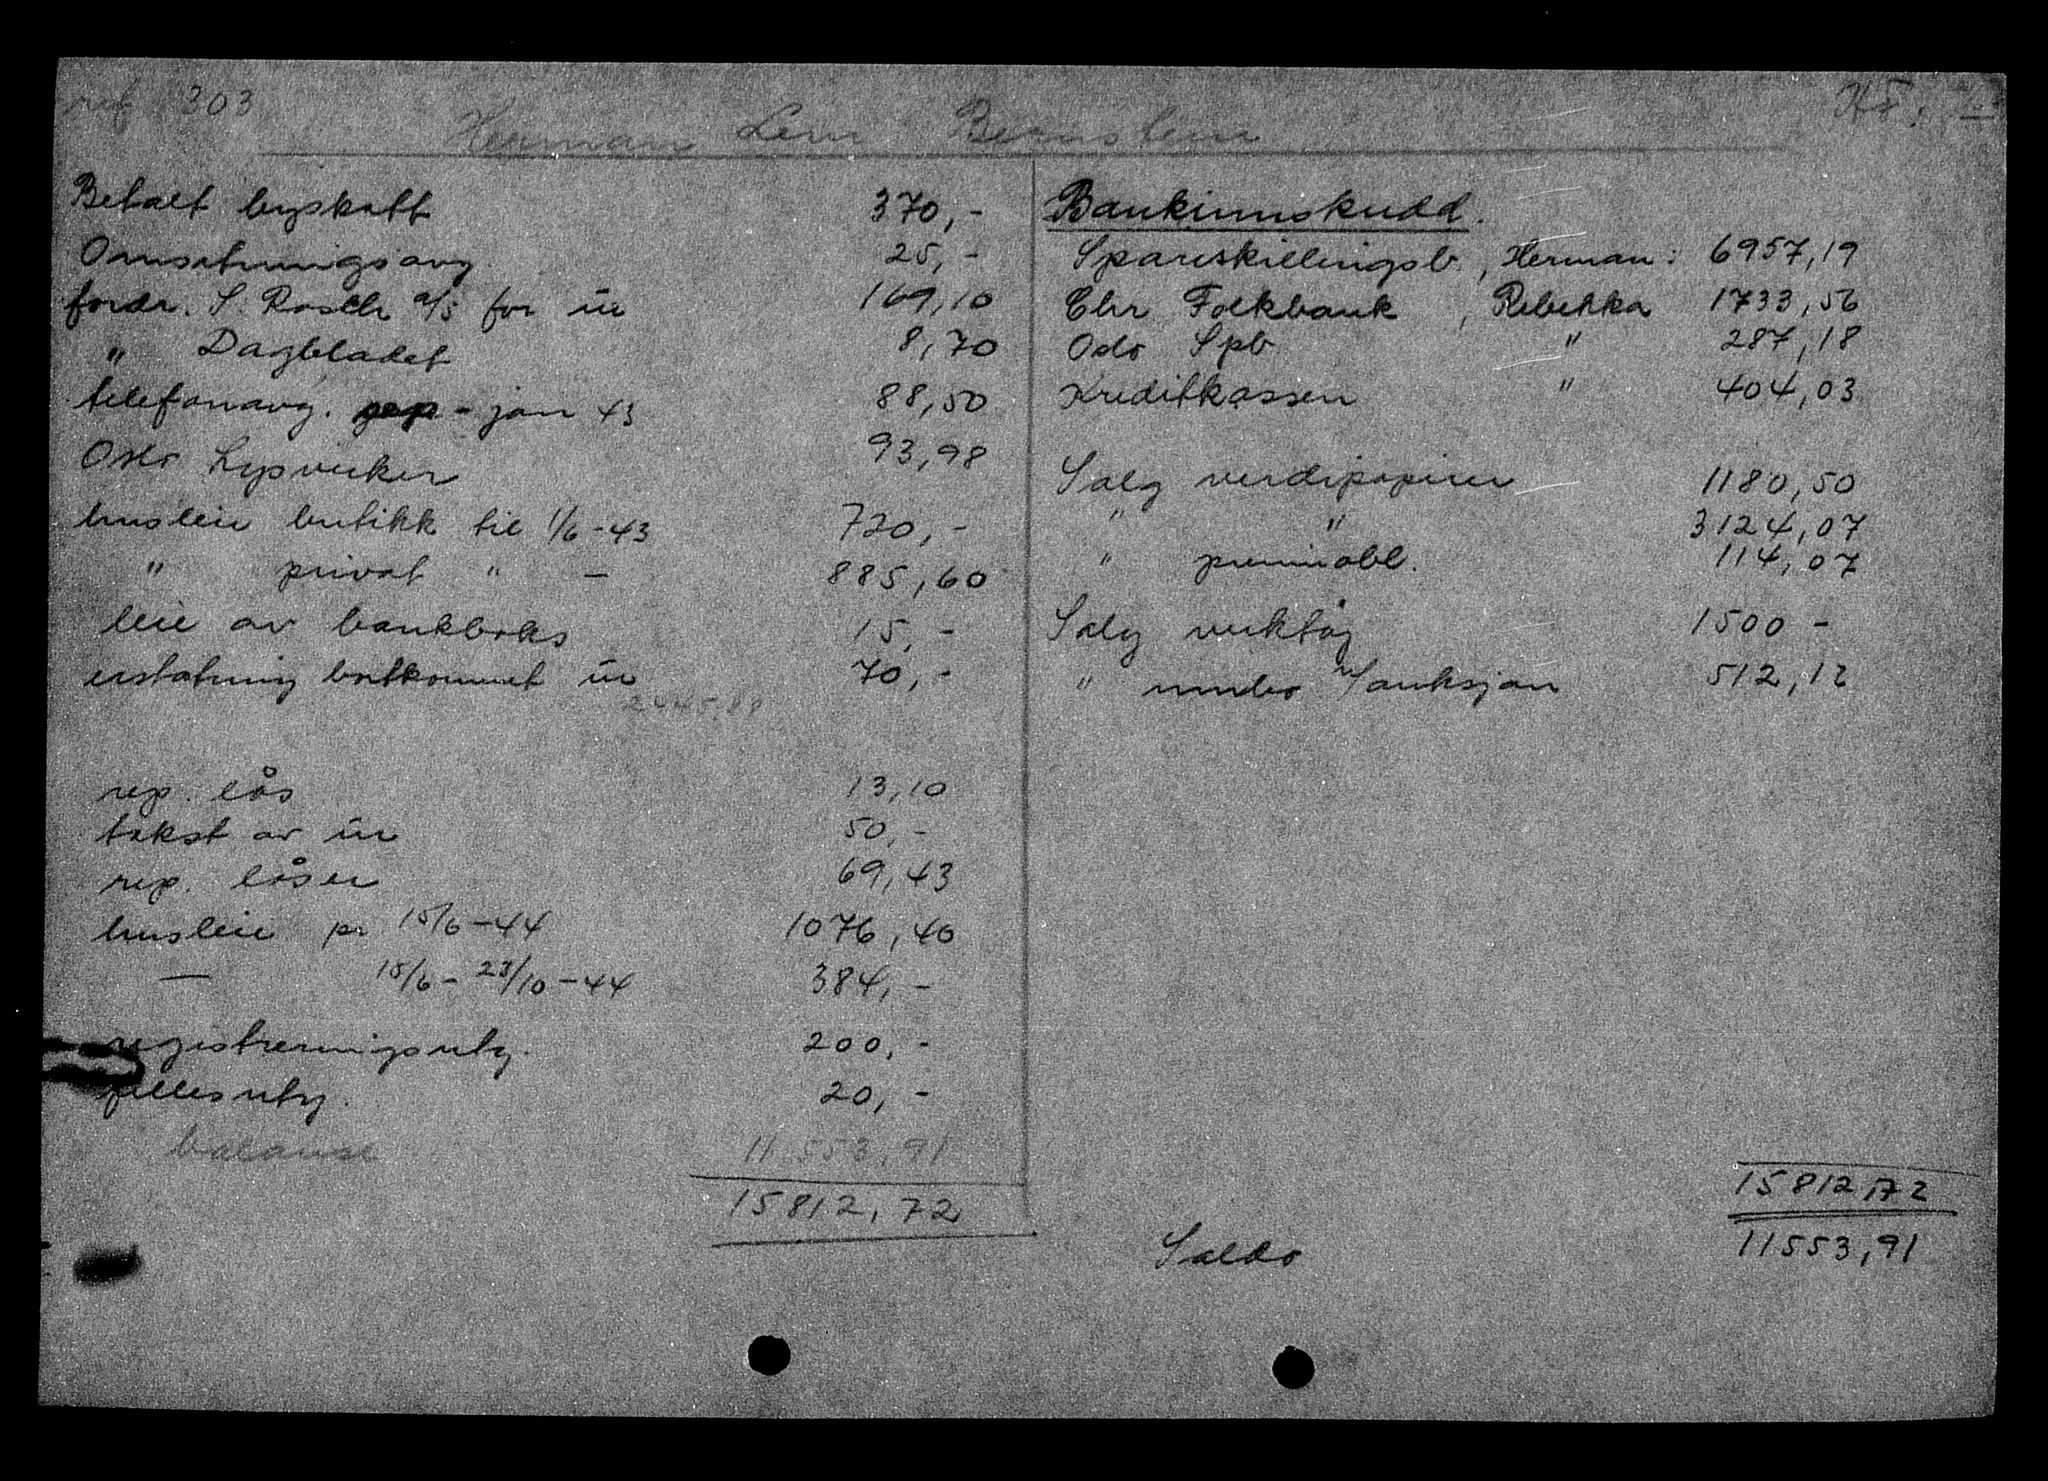 303
Herman Levi Bernstein
Betalt byskatt 370,-
Omsetningsavg. 25,-
fordr. S. Roseth a/s for ür 169,10
" Dagbladet 8,70
telefonavg. - jan 43 88,50
Oslo Lysverker 93,98
husleie butikk til 1/6-43 720,-
" privat " - 885,60
leie av bankboks 15,-
erstatning bortkommet ür 70,-
2445,88
rep. lås 13,10
takst av ür 50,-
rep. låser 69,43
husleie pr 15/6-44 1076,40
— 15/6-23/10-44 384,-
registreringsutg. 200,-
fellesutg. 20,-
balanse 11 553,91
15812,72
Bankinnskudd.
Spareskillingsb., Herman: 6957,19
Chr Folkbank, Rebekka 1733,56
Oslo Spb " 287,18
Kreditkassen " 404,03
Salg verdipapirer 1180,50
" " 3124,07
" premieobl. 114,07
Salg verktøy 1500 -
" under v/auksjon 512,12
15812,72
Saldo 11553,91